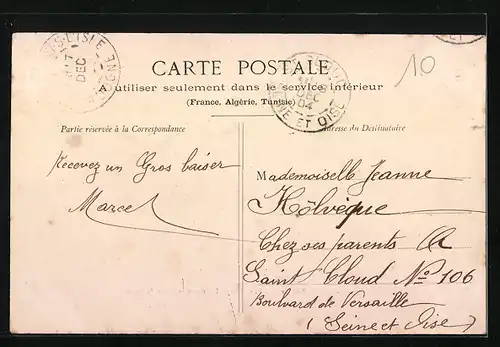 S-L'ISLE
17
DEC
10
CARTE POSTALE
A utiliser seulement dans le service intérieur
(France, Algérie, Tunisie)
DEC
04
ET OISE
Partie réservée à la Correspondance
Adresse du Destinataire
Recevez un Gros baiser
Marcel
Mademoiselle Jeanne
Hôlvèque
Chez ses parents A
Saint Cloud No 106
Boulvard de Versaille
(Seine et Oise)